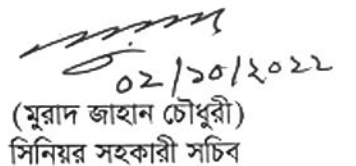 ০২/১০/২০২২
(মুরাদ জাহান চৌধুরী)
সিনিয়র সহকারী সচিব